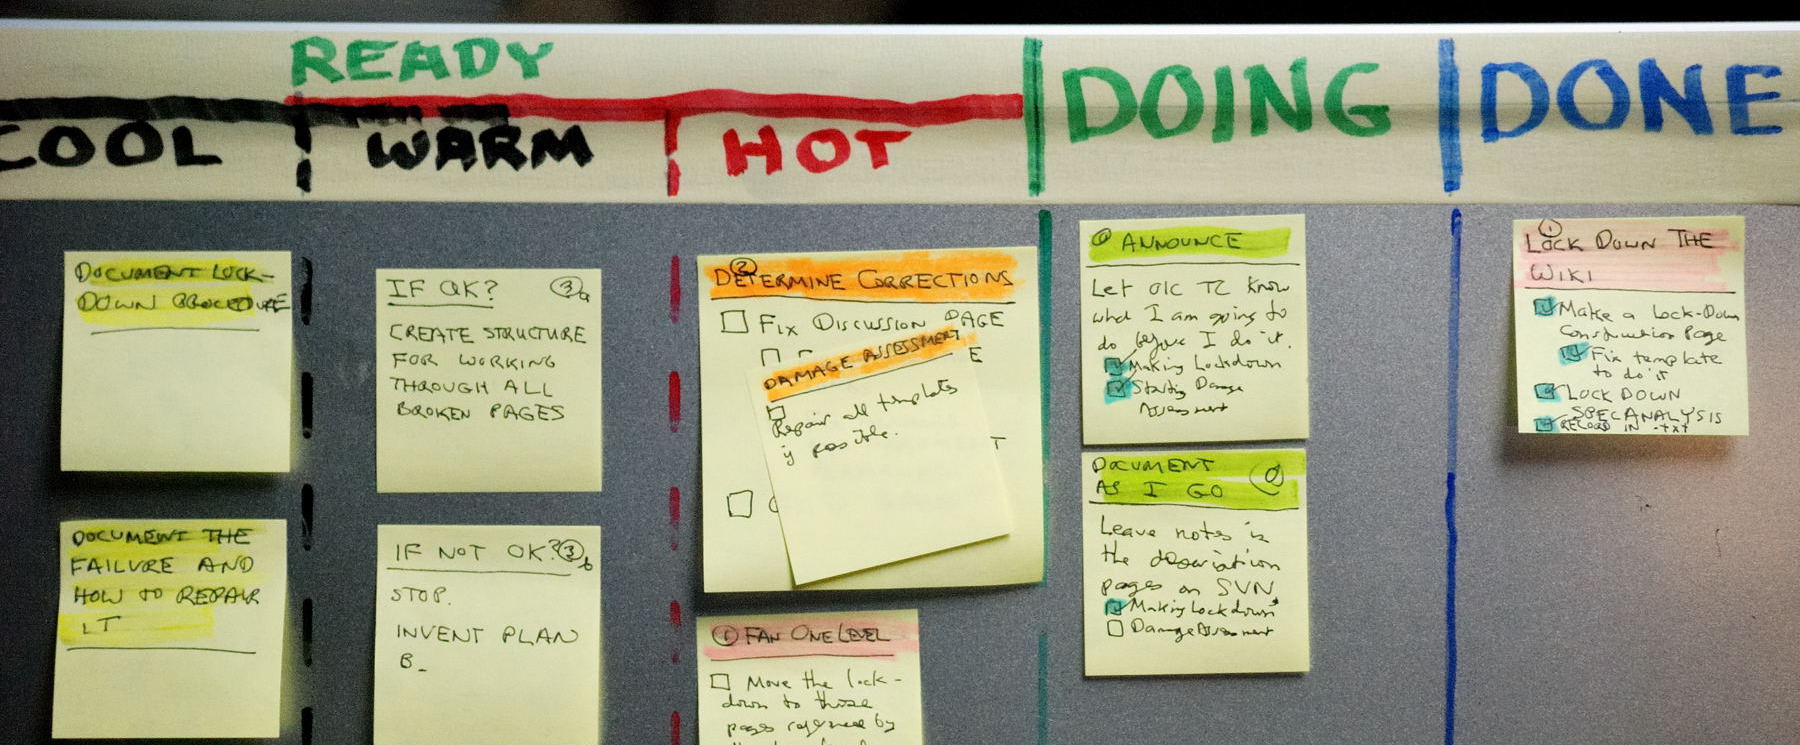 READY
COOL
WARM
HOT
DOING
DONE
DOCUMENT LOCK-
DOWN PROCEDURE
DOCUMENT THE
FAILURE AND
HOW TO REPAIR
IT
IF OK? 3a
CREATE STRUCTURE
FOR WORKING
THROUGH ALL
BROKEN PAGES
IF NOT OK? 3b
STOP.
INVENT PLAN
B_
2
DETERMINE CORRECTIONS
FIX DISCUSSION PAGE
E
T
DAMAGE ASSESSMENT
Repair all templates
if possible.
1 FAN ONE LEVEL
Move the lock-
down to those
pages referenced by
0 ANNOUNCE
Let OIC TC know
what I am going to
do before I do it.
Making Lockdown
Starting Damage
Assessment
DOCUMENT
AS I GO 0
Leave notes in
the
pages on SVN
Making Lockdown
Damage Assessment
1
LOCK DOWN THE
WIKI
Make a Lock-Down
Construction Page
Fix template
to do it
LOCK DOWN
SPEC ANALYSIS
RECORD IN .txt